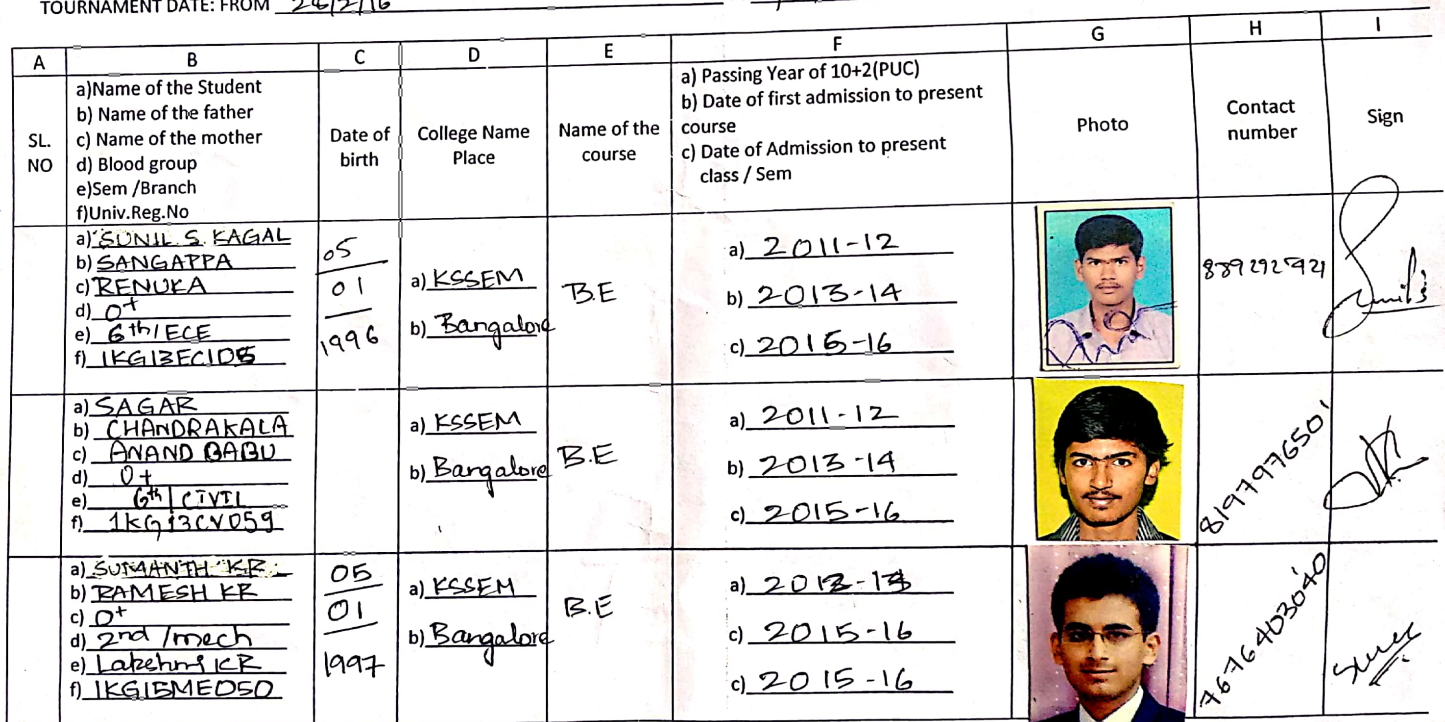 TOURNAMENT DATE: FROM 26/2/16
A B C D E F G H I
SL. NO
a)Name of the Student
b) Name of the father
c) Name of the mother
d) Blood group
e)Sem /Branch
f)Univ.Reg.No
Date of birth
College Name Place
Name of the course
a) Passing Year of 10+2(PUC)
b) Date of first admission to present
course
c) Date of Admission to present
class / Sem
Photo
Contact number
Sign
a) SUNIL S. KAGAL
b) SANGAPPA
c) RENUKA
d) O+
e) 6th/ECE
f) 1KG13EC105
05
01
1996
a) KSSEM
b) Bangalore
B.E
a) 2011-12
b) 2013-14
c) 2015-16
8892927921
Sunil S
a) SAGAR
b) CHANDRAKALA
c) ANAND BABU
d) O+
e) 6th | CIVIL
f) 1KG13CV059
a) KSSEM
b) Bangalore
B.E
a) 2011-12
b) 2013-14
c) 2015-16
8197976501
a) SUMANTH KR
b) RAMESH KR
c) O+
d) 2nd /mech
e) Lakshmi KR
f) 1KG15ME050
05
01
1997
a) KSSEM
b) Bangalore
B.E
a)
c) 2015-16
c) 2015-16
7676403040